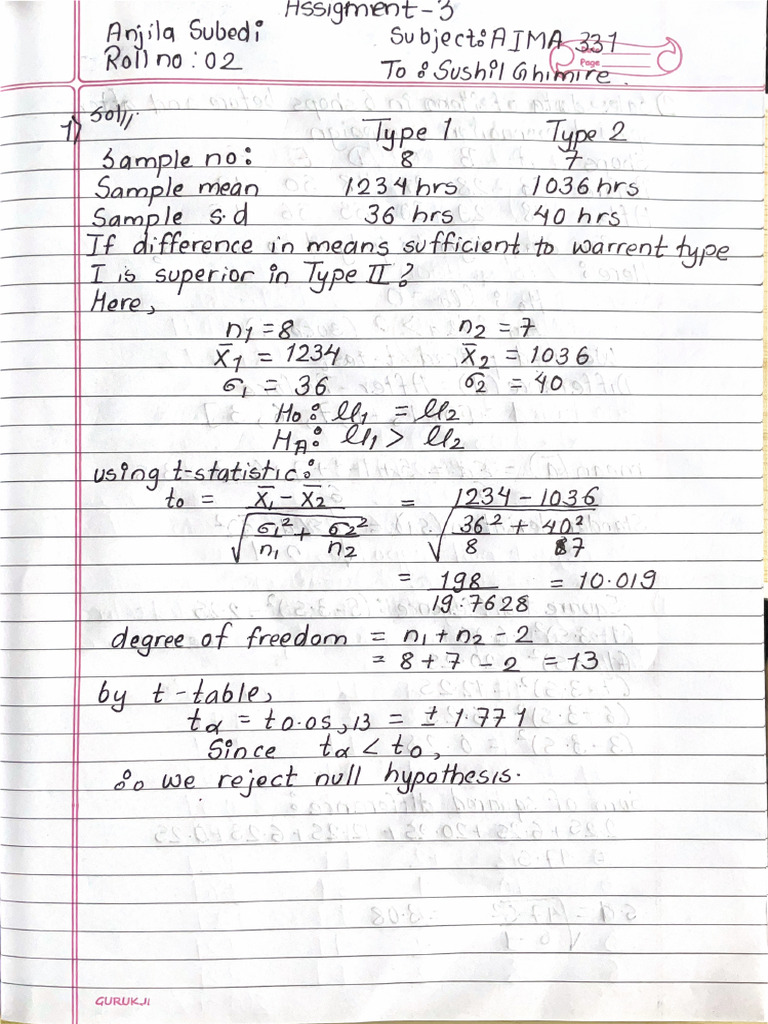 Assigment-3
Anjila Subedi
Subject: AIMA 331
Roll no: 02
Page
To: Sushil Ghimire.
1) Soln,
Type 1 Type 2
Sample no: 8 7
Sample mean 1234 hrs 1036 hrs
Sample s.d 36 hrs 40 hrs
If difference in means sufficient to warrent type
I is superior in Type II?
Here,
n₁ = 8 n₂ = 7
x̄₁ = 1234 x̄₂ = 1036
σ₁ = 36 σ₂ = 40
H₀: μ₁ = μ₂
H_A: μ₁ > μ₂
using t-statistic:
t₀ = (x̄₁ - x̄₂) / √(σ₁²/n₁ + σ₂²/n₂) = (1234 - 1036) / √(36²/8 + 40²/7)
= 198 / 19.7628 = 10.019
degree of freedom = n₁ + n₂ - 2
= 8 + 7 - 2 = 13
by t-table,
tα = t0.05,13 = ± 1.771
Since tα < t₀,
∴ we reject null hypothesis.
GURUKJI